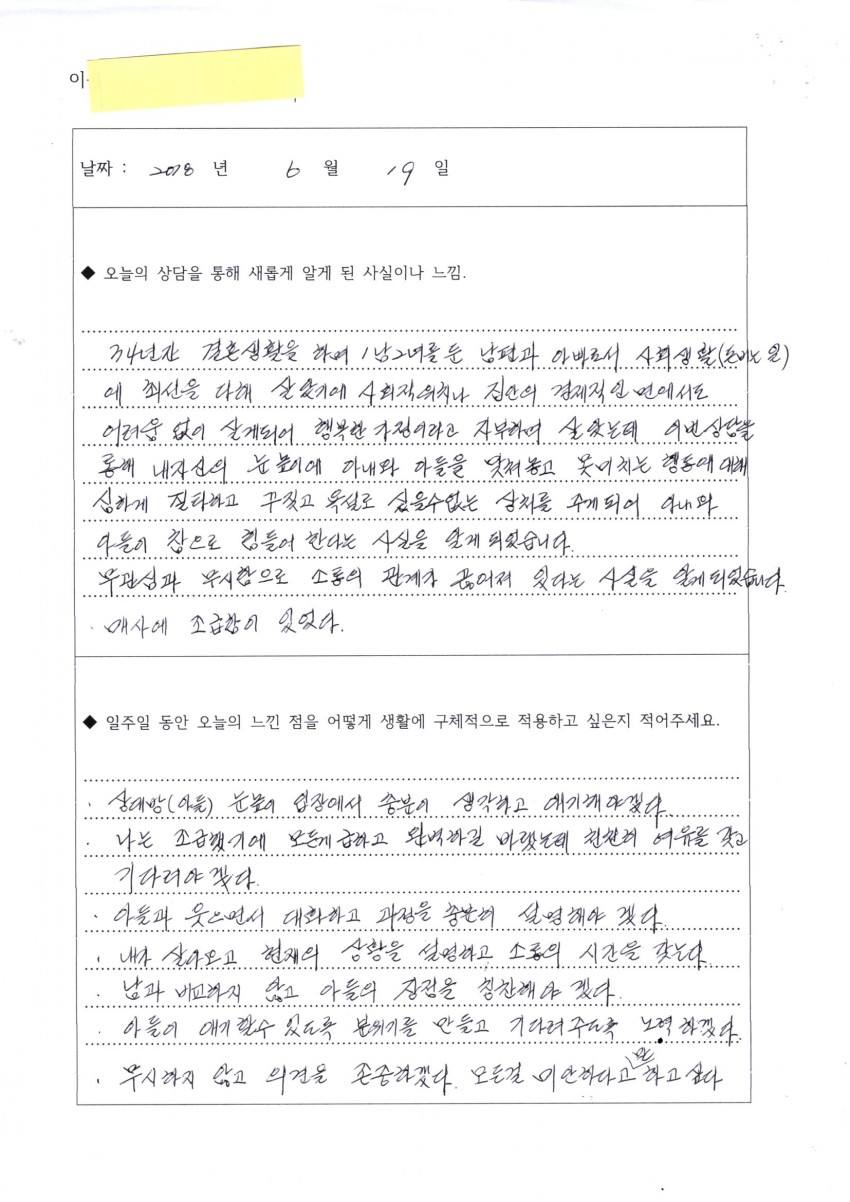 이
날짜 : 2018 년 6 월 19 일
◆ 오늘의 상담을 통해 새롭게 알게 된 사실이나 느낌.
34년간 결혼생활을 하며 1남2녀를 둔 남편과 아빠로서 사회생활(돈버는 일)
에 최선을 다해 살았기에 사회적위치나 집안의 경제적인 면에서도
어려움 없이 살게되어 행복한 가정이라고 자부하며 살았는데 이번상담을
통해 내자신의 눈높이에 아내와 아들을 맞춰놓고 못미치는 행동에 대해
심하게 질타하고 꾸짖고 욕설로 씻을수없는 상처를 주게되어 아내와
아들이 참으로 힘들어 한다는 사실을 알게 되었습니다.
무관심과 무시함으로 소통의 관계가 끊어져 있다는 사실을 알게되었습니다.
· 매사에 조급함이 있었다.
◆ 일주일 동안 오늘의 느낀 점을 어떻게 생활에 구체적으로 적용하고 싶은지 적어주세요.
· 상대방(아들) 눈높이 입장에서 충분이 생각하고 얘기해야겠다.
· 나는 조급했기에 모든게급하고 완벽하길 바랬는데 천천히 여유를 갖고
기다려야겠다.
· 아들과 웃으면서 대화하고 과정을 충분히 설명해야 겠다.
· 내가 살아오고 현재의 상황을 설명하고 소통의 시간을 갖는다.
· 남과 비교하지 않고 아들의 장점을 칭찬해야 겠다.
· 아들이 얘기할수 있도록 분위기를 만들고 기다려주도록 노력하겠다.
· 무시하지 않고 의견을 존중하겠다. 모든걸 미안하다고 말하고 싶다